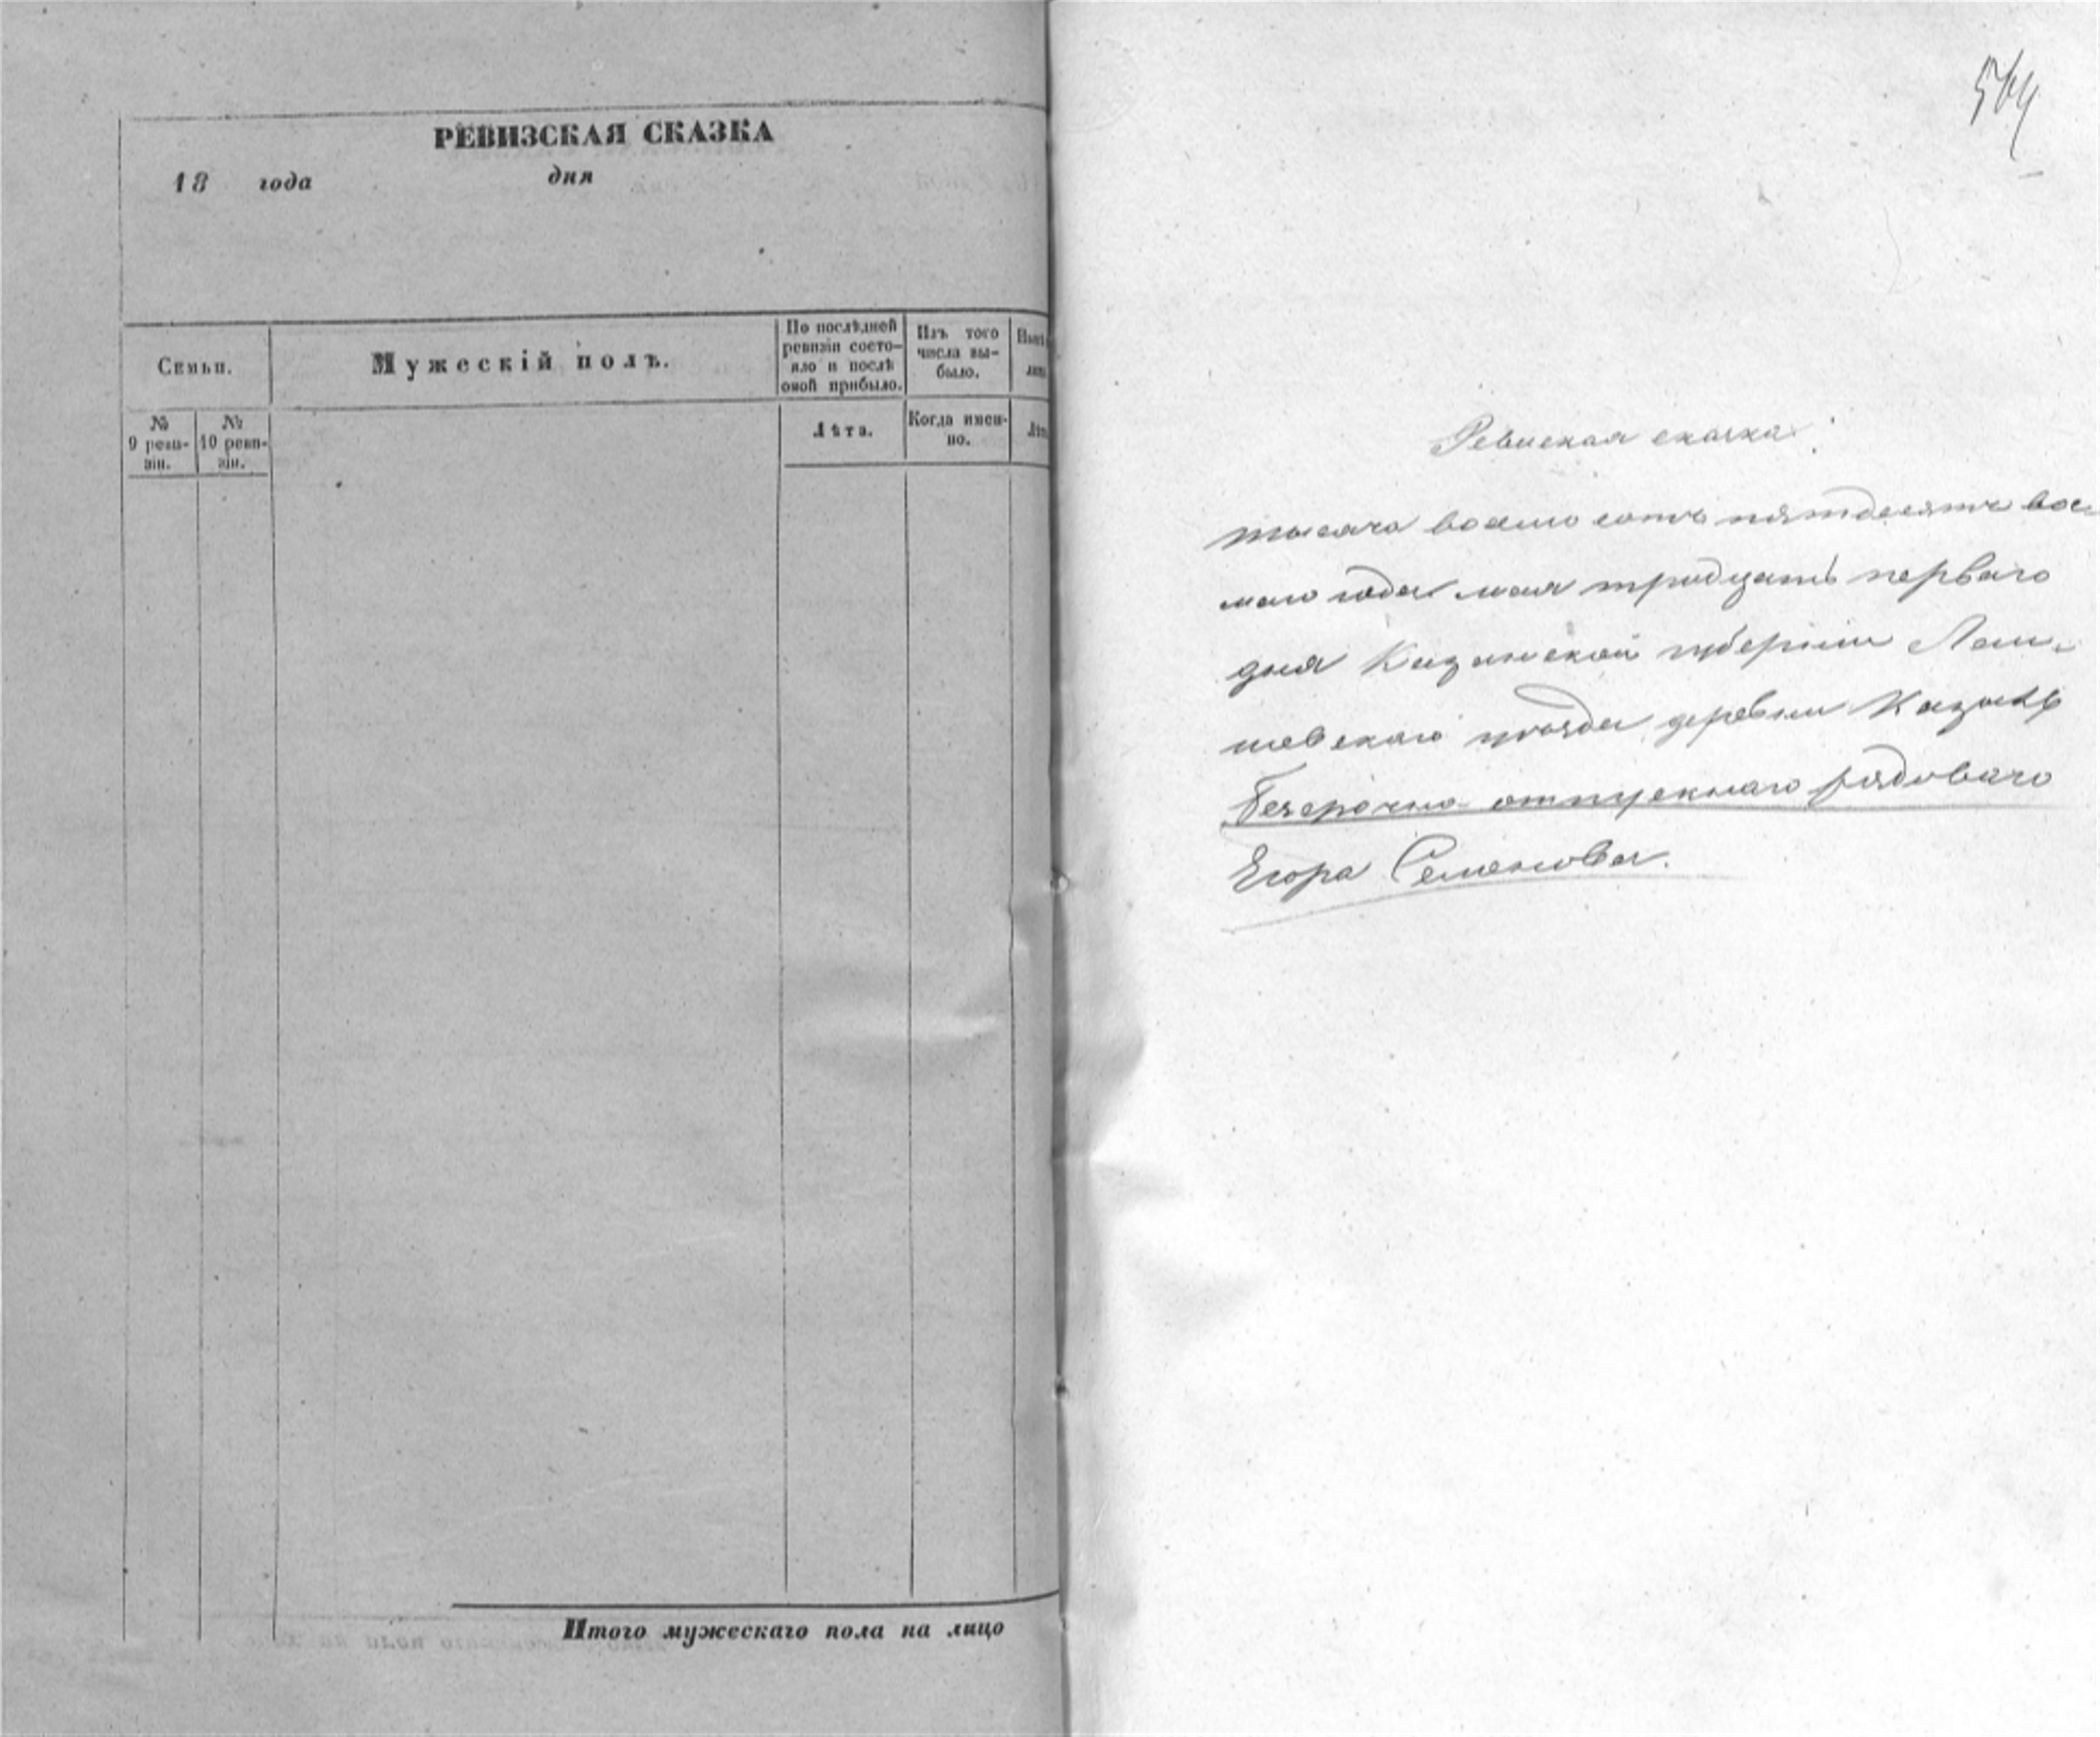 РЕВИЗСКАЯ СКАЗКА
18 года дня
Семьи.
Мужескій полъ.
По послѣдней
ревизіи состо-
яло и послѣ
оной прибыло.
Изъ того
числа вы-
было.
№
9 реви-
зіи.
№
10 реви-
зіи.
Лѣта.
Когда имен-
но.
Итого мужескаго пола на лицо
Ревиская сказка
тысяча восемь сотъ пятдесятъ вось
маго года мая тридцать перваго
дня Казанской губерніи Лаи-
шевскаго уѣзда деревни
Безсрочно отпускнаго рядоваго
Егора Семенова.